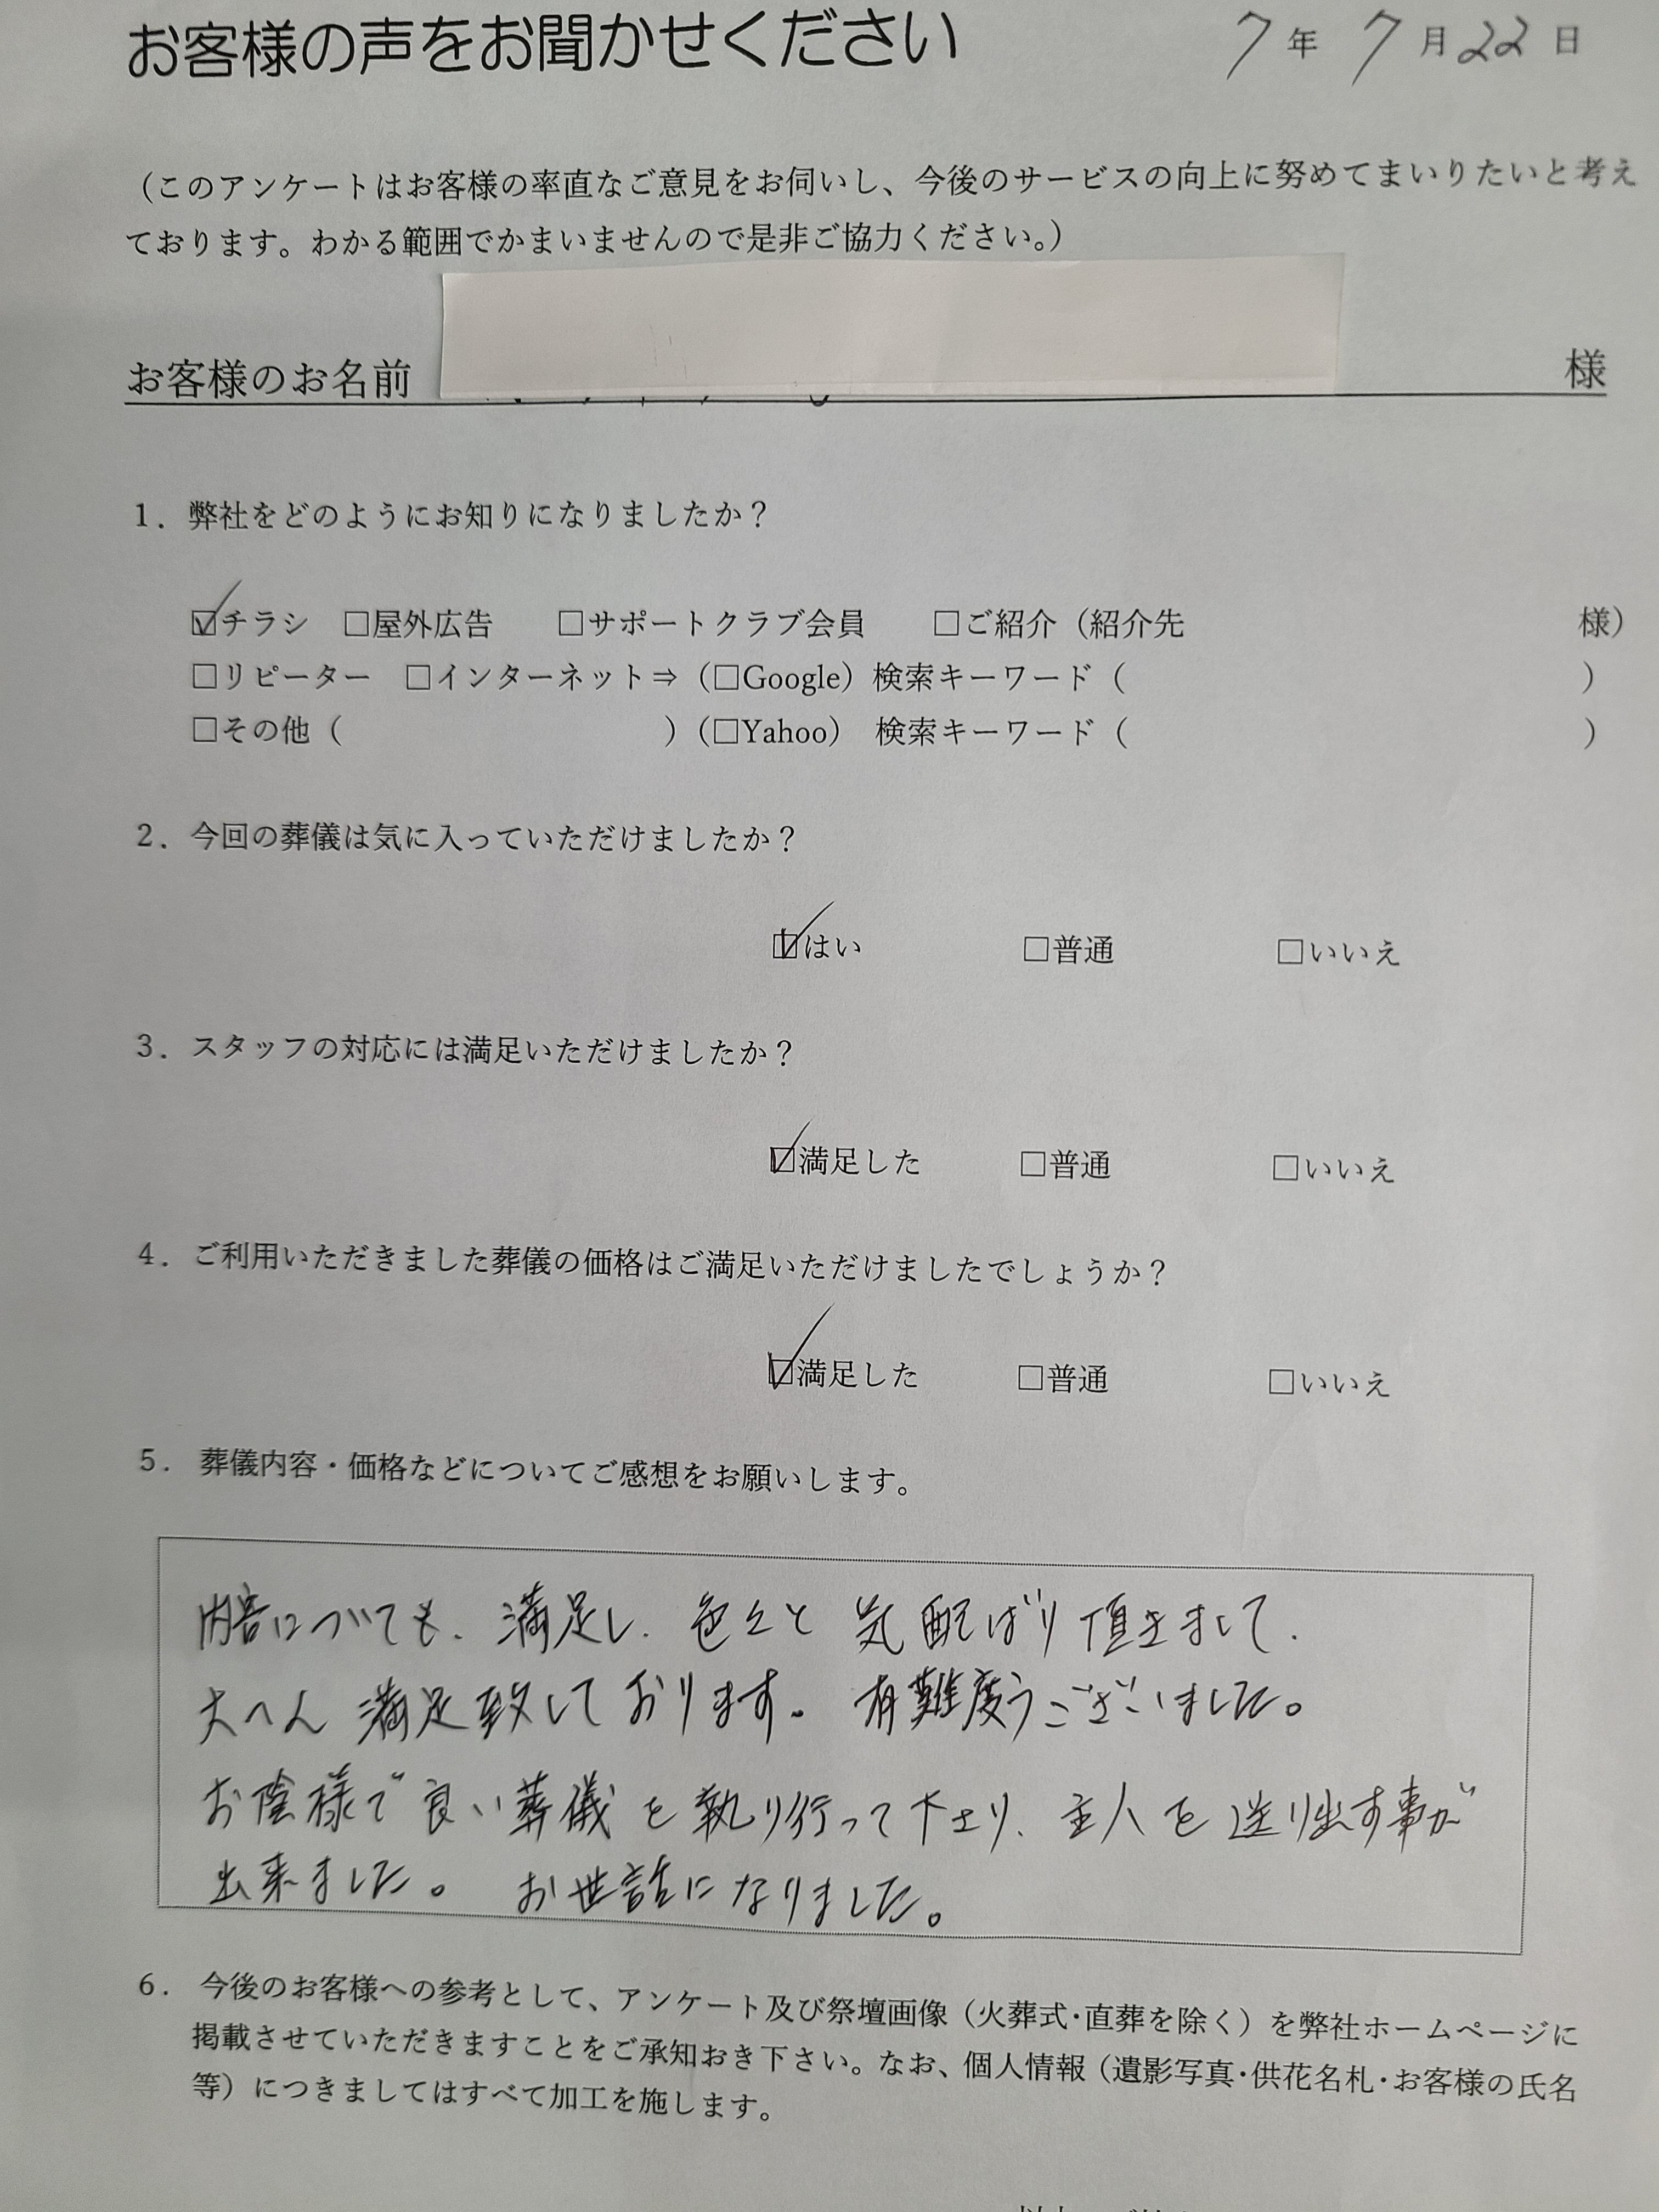 お客様の声をお聞かせください 7年 7月22日
（このアンケートはお客様の率直なご意見をお伺いし、今後のサービスの向上に努めてまいりたいと考え
ております。わかる範囲でかまいませんので是非ご協力ください。）
お客様のお名前 様
1．弊社をどのようにお知りになりましたか？
☑チラシ □屋外広告 □サポートクラブ会員 □ご紹介（紹介先 様）
□リピーター □インターネット⇒（□Google）検索キーワード（ ）
□その他（ ）（□Yahoo） 検索キーワード（ ）
2．今回の葬儀は気に入っていただけましたか？
☑はい □普通 □いいえ
3．スタッフの対応には満足いただけましたか？
☑満足した □普通 □いいえ
4．ご利用いただきました葬儀の価格はご満足いただけましたでしょうか？
☑満足した □普通 □いいえ
5． 葬儀内容・価格などについてご感想をお願いします。
内容についても、満足し、色々と気配ばり頂きまして、
大へん満足致しております。有難度うございました。
お陰様で良い葬儀を執り行って下さり、主人を送り出す事が
出来ました。 お世話になりました。
6． 今後のお客様への参考として、アンケート及び祭壇画像（火葬式・直葬を除く）を弊社ホームページに
掲載させていただきますことをご承知おき下さい。なお、個人情報（遺影写真・供花名札・お客様の氏名
等）につきましてはすべて加工を施します。